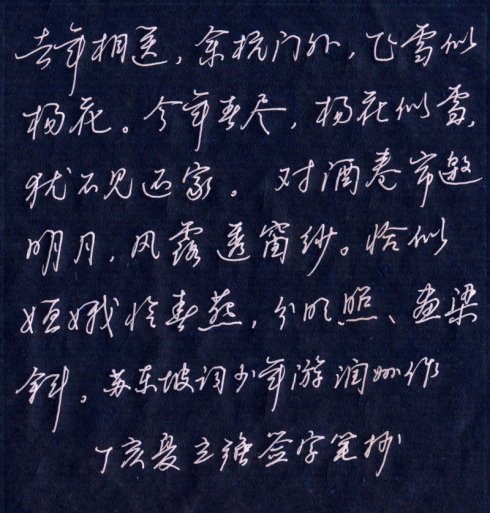 去年相送，余杭门外，飞雪似
杨花。今年春尽，杨花似雪，
犹不见还家。对酒卷帘邀
明月，风露透窗纱。恰似
姮娥怜春燕，分明照、画梁
斜。苏东坡词少年游润州作
丁亥夏立强签字笔抄